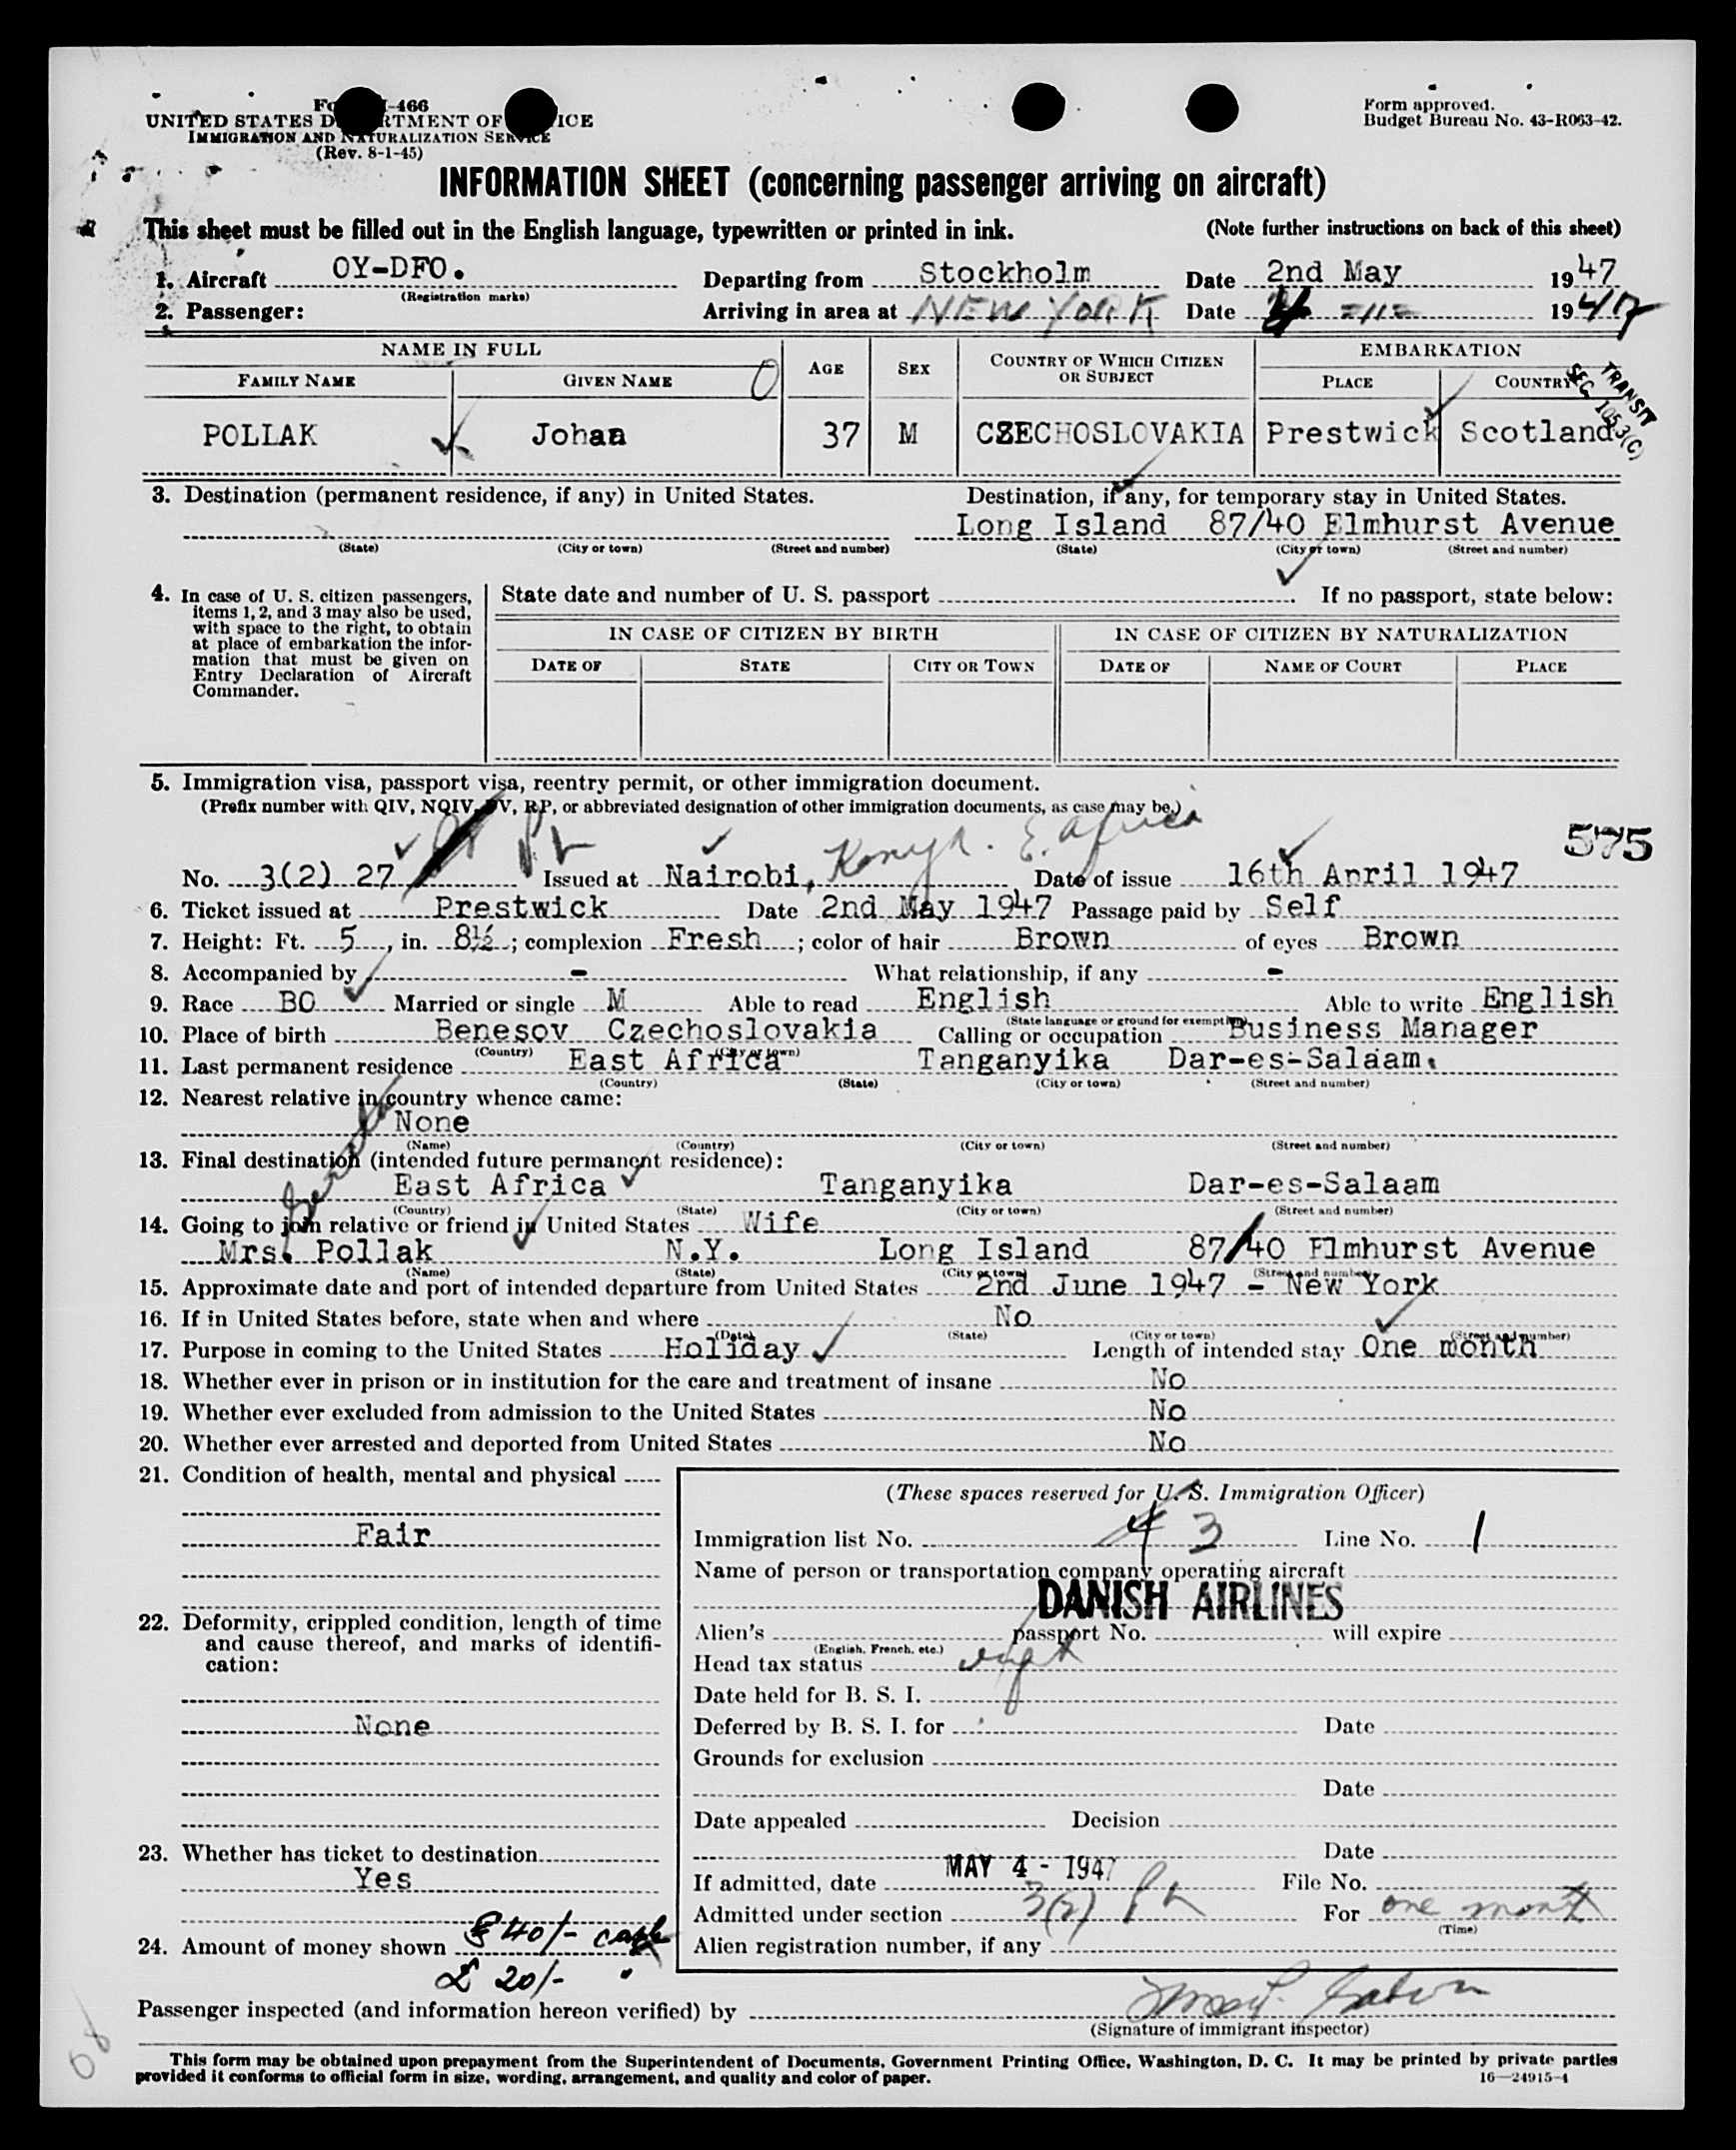 Form I-466
UNITED STATES DEPARTMENT OF JUSTICE
IMMIGRATION AND NATURALIZATION SERVICE
(Rev. 8-1-45)
Form approved.
Budget Bureau No. 43-R063-42.
INFORMATION SHEET (concerning passenger arriving on aircraft)
This sheet must be filled out in the English language, typewritten or printed in ink. (Note further instructions on back of this sheet)
1. Aircraft OY-DFO. Departing from Stockholm Date 2nd May 1947
(Registration marks)
2. Passenger: Arriving in area at NEW YORK Date 1947
NAME IN FULL AGE SEX COUNTRY OF WHICH CITIZEN OR SUBJECT EMBARKATION
FAMILY NAME GIVEN NAME PLACE COUNTRY
TRANSIT
SEC. 105.3(C)
POLLAK Johan 37 M CZECHOSLOVAKIA Prestwick Scotland
3. Destination (permanent residence, if any) in United States. Destination, if any, for temporary stay in United States.
Long Island 87/40 Elmhurst Avenue
(State) (City or town) (Street and number) (State) (City or town) (Street and number)
4. In case of U. S. citizen passengers, items 1, 2, and 3 may also be used, with space to the right, to obtain at place of embarkation the information that must be given on Entry Declaration of Aircraft Commander.
State date and number of U. S. passport If no passport, state below:
IN CASE OF CITIZEN BY BIRTH IN CASE OF CITIZEN BY NATURALIZATION
DATE OF STATE CITY OR TOWN DATE OF NAME OF COURT PLACE
5. Immigration visa, passport visa, reentry permit, or other immigration document.
(Prefix number with QIV, NQIV, PV, RP, or abbreviated designation of other immigration documents, as case may be.)
575
No. 3(2) 27 Issued at Nairobi, Kenya. E. Africa Date of issue 16th April 1947
6. Ticket issued at Prestwick Date 2nd May 1947 Passage paid by Self
7. Height: Ft. 5, in. 8½; complexion Fresh; color of hair Brown of eyes Brown
8. Accompanied by - What relationship, if any -
9. Race BO Married or single M Able to read English Able to write English
(State language or ground for exemption)
10. Place of birth Benesov Czechoslovakia Calling or occupation Business Manager
(Country) (City or town)
11. Last permanent residence East Africa Tanganyika Dar-es-Salaam.
(Country) (State) (City or town) (Street and number)
12. Nearest relative in country whence came:
None
(Name) (Country) (City or town) (Street and number)
13. Final destination (intended future permanent residence):
East Africa Tanganyika Dar-es-Salaam
(Country) (State) (City or town) (Street and number)
14. Going to join relative or friend in United States Wife
Mrs. Pollak N.Y. Long Island 87/40 Elmhurst Avenue
(Name) (State) (City or town) (Street and number)
15. Approximate date and port of intended departure from United States 2nd June 1947 - New York
16. If in United States before, state when and where No
(Date) (State) (City or town) (Street and number)
17. Purpose in coming to the United States Holiday Length of intended stay One month
18. Whether ever in prison or in institution for the care and treatment of insane No
19. Whether ever excluded from admission to the United States No
20. Whether ever arrested and deported from United States No
21. Condition of health, mental and physical
Fair
22. Deformity, crippled condition, length of time and cause thereof, and marks of identification:
None
23. Whether has ticket to destination
Yes
24. Amount of money shown $ 40/- cash
£ 20/- "
(These spaces reserved for U. S. Immigration Officer)
Immigration list No. 3 Line No. 1
Name of person or transportation company operating aircraft
DANISH AIRLINES
Alien's passport No. will expire
(English, French, etc.)
Head tax status
Date held for B. S. I.
Deferred by B. S. I. for Date
Grounds for exclusion
Date
Date appealed Decision
Date
If admitted, date MAY 4 - 1947 File No.
Admitted under section 3(2) For one month
(Time)
Alien registration number, if any
Passenger inspected (and information hereon verified) by
(Signature of immigrant inspector)
This form may be obtained upon prepayment from the Superintendent of Documents, Government Printing Office, Washington, D. C. It may be printed by private parties
provided it conforms to official form in size, wording, arrangement, and quality and color of paper. 16—24915-4